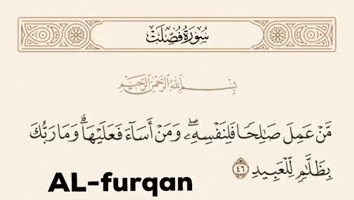 سُورَةُ فُصِّلَتْ
بِسْمِ ٱللَّهِ ٱلرَّحْمَٰنِ ٱلرَّحِيمِ
مَّنْ عَمِلَ صَٰلِحًا فَلِنَفْسِهِۦ ۖ وَمَنْ أَسَآءَ فَعَلَيْهَا ۗ وَمَا رَبُّكَ
بِظَلَّٰمٍ لِّلْعَبِيدِ ٤٦
AL-furqan